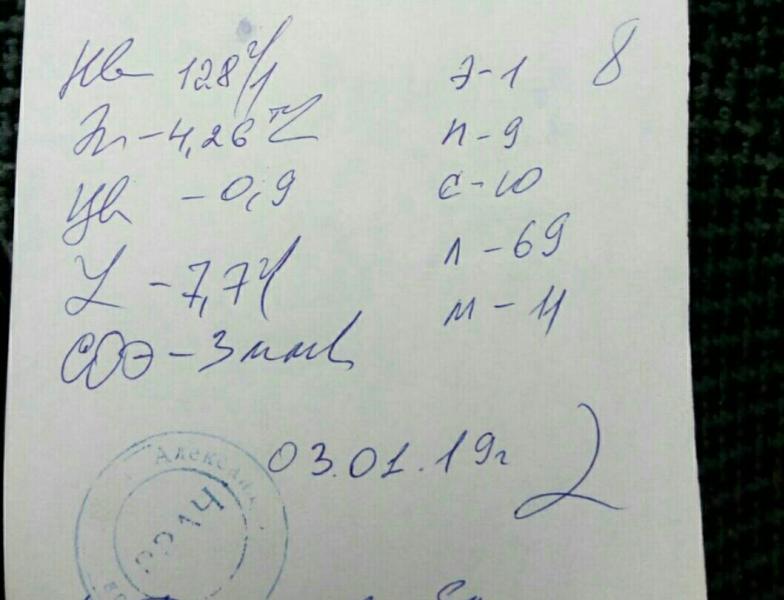 Нв 128 г/л
Эр - 4,26 т/л
Цв - 0,9
L - 7,7 г/л
СОЭ - 3 мм/ч
Э - 1
п - 9
с - 10
л - 69
м - 11
8
03.01.19г
ВРАЧ